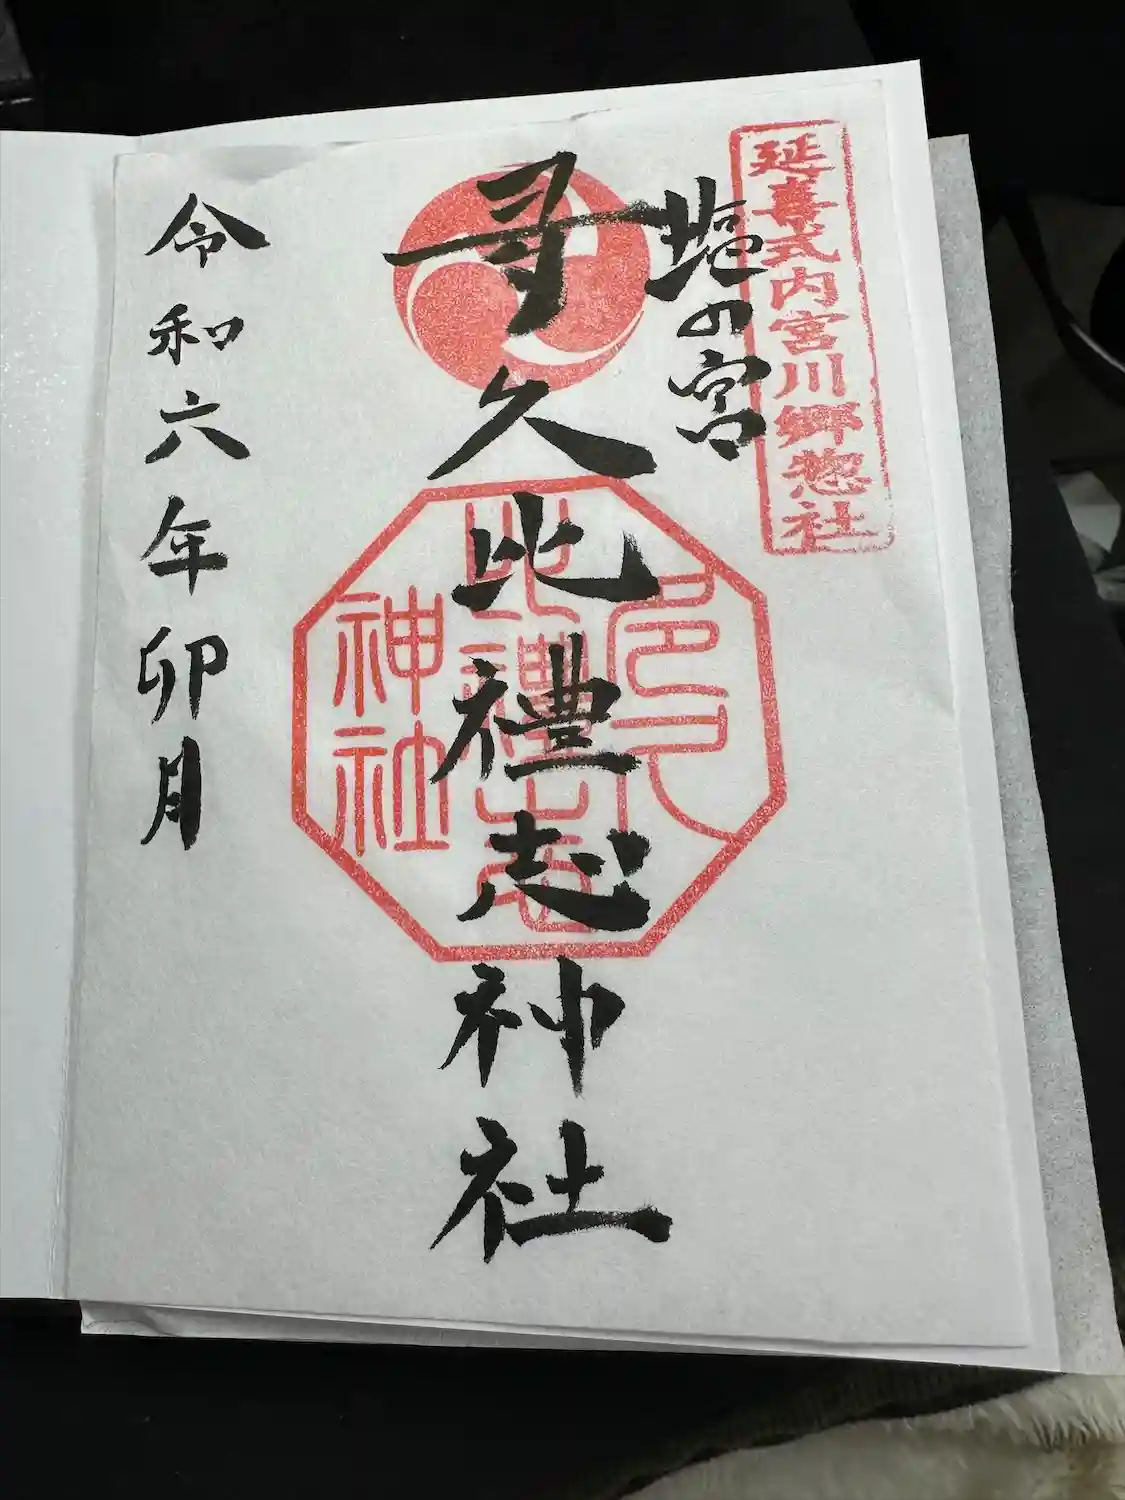 延喜式内宮川郷惣社
塩の宮
多久比禮志神社
多久
比禮志
神社
令和六年卯月